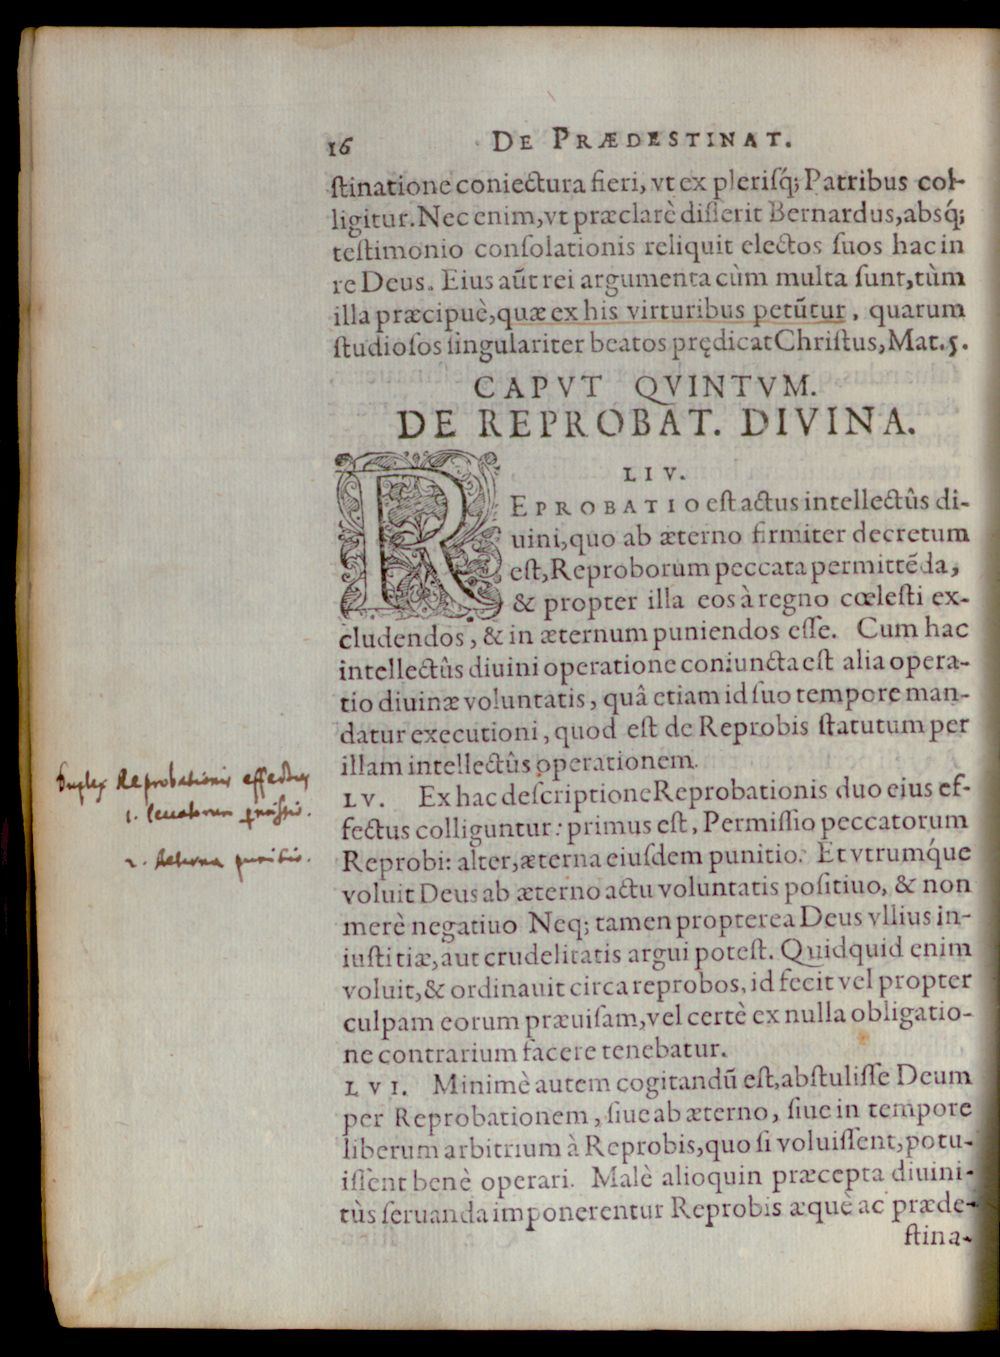 16 DE PRÆDESTINAT.
stinatione coniectura fieri, vt ex plerisq; Patribus col-
ligitur. Nec enim, vt præclarè disserit Bernardus, absq́;
testimonio consolationis reliquit electos suos hac in
re Deus. Eius aũt rei argumenta cùm multa sunt, tùm
illa præcipuè, quæ ex his virturibus petũtur, quarum
studiosos singulariter beatos prędicat Christus, Mat. 5.
CAPVT QVINTVM.
DE REPROBAT. DIVINA.
LIV.
REPROBATIO est actus intellectûs di-
uini, quo ab æterno firmiter decretum
est, Reproborum peccata permittẽda,
& propter illa eos à regno cœlesti ex-
cludendos, & in æternum puniendos esse. Cum hac
intellectûs diuini operatione coniuncta est alia opera-
tio diuinæ voluntatis, quâ etiam id suo tempore man-
datur executioni, quod est de Reprobis statutum per
illam intellectûs operationem.
Duplex Reprobationis effectus
1. peccatorum permissio.
2. Aeterna punitio.
LV. Ex hac descriptione Reprobationis duo eius ef-
fectus colliguntur: primus est, Permissio peccatorum
Reprobi: alter, æterna eiusdem punitio. Et vtrumq́ue
voluit Deus ab æterno actu voluntatis positiuo, & non
merè negatiuo Neq; tamen propterea Deus vllius in-
iustitiæ, aut crudelitatis argui potest. Quidquid enim
voluit, & ordinauit circa reprobos, id fecit vel propter
culpam eorum præuisam, vel certè ex nulla obligatio-
ne contrarium facere tenebatur.
LVI. Minimè autem cogitandũ est, abstulisse Deum
per Reprobationem, siue ab æterno, siue in tempore
liberum arbitrium à Reprobis, quo si voluissent, potu-
issent benè operari. Malè alioquin præcepta diuini-
tùs seruanda imponerentur Reprobis æquè ac præde-
stina-